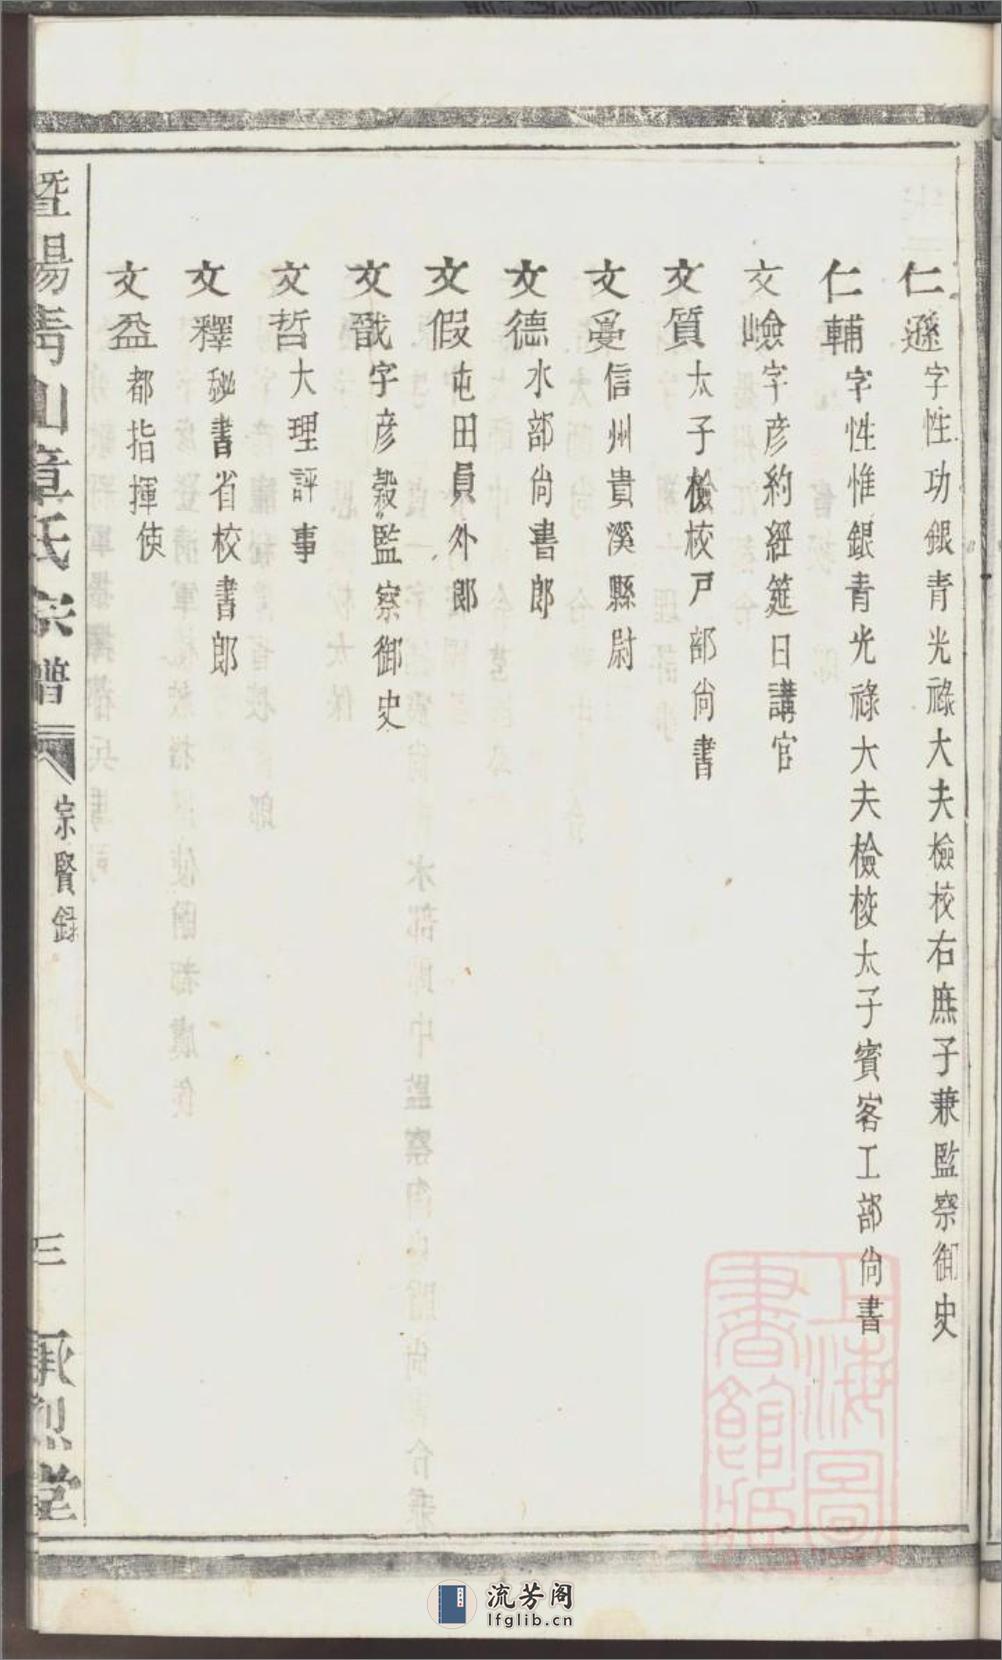 仁遜字性功銀青光祿大夫檢校右庶子兼監察御史
仁輔字性惟銀青光祿大夫檢校太子賓客工部尚書
文嶮字彦約經筵日講官
文質太子檢校戸部尚書
文㬅信州貴溪縣尉
文德水部尚書郎
文假屯田員外郎
文戩字彦穀監察御史
文哲大理評事
文釋秘書省校書郎
文盈都指揮使
暨陽靑山章氏宗譜
宗賢録
三
承烈堂
上海圖書館藏
流芳阁
lfglib.cn